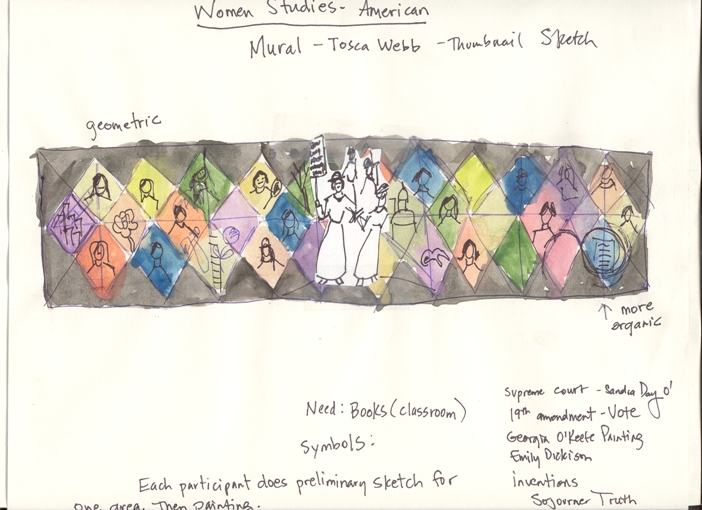 Women Studies- American
Mural - Tosca Webb - Thumbnail Sketch
geometric
↑ more
organic
Need: Books (classroom)
Symbols:
Each participant does preliminary sketch for
one area. Then painting.
Supreme court - Sandra Day O'
19th amendment - Vote
Georgia O'Keefe Painting
Emily Dickison
inventions
Sojourner Truth